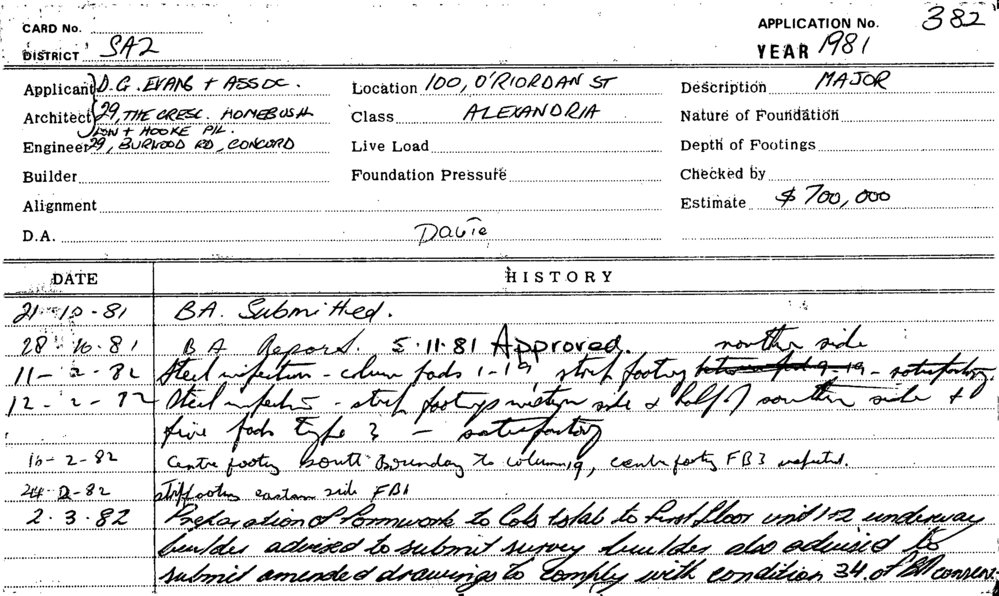 CARD No.
APPLICATION No. 382
DISTRICT SA2
YEAR 1981
Applicant D.G. EVANS + ASSOC.
Location 100, O'RIORDAN ST
Description MAJOR
Architect 29, THE CRESC. HOMEBUSH
Class ALEXANDRIA
Nature of Foundation
+ HOOKE P/L.
Engineer 29, BURWOOD RD, CONCORD
Live Load
Depth of Footings
Builder
Foundation Pressure
Checked by
Alignment
Estimate $700,000
D.A.
DATE HISTORY
21-10-81 BA. Submitted.
28-10-81 BA Report. 5.11.81 Approved. northern side
11-2-82 Steel inspection - column pads 1-19, strip footing - satisfactory
12-2-82 Steel inspection - strip footings western side & half of southern side &
five pads type 3 - satisfactory
16-2-82 Centre footing south Boundary to column 19, centre footing FB3 inspected.
24-2-82 strip footing eastern side FB1
2.3.82 Preparation of formwork to Cols & slab to first floor unit 1+2 underway
builder advised to submit survey builder also advised to
submit amended drawings to comply with condition 34 of BA consent